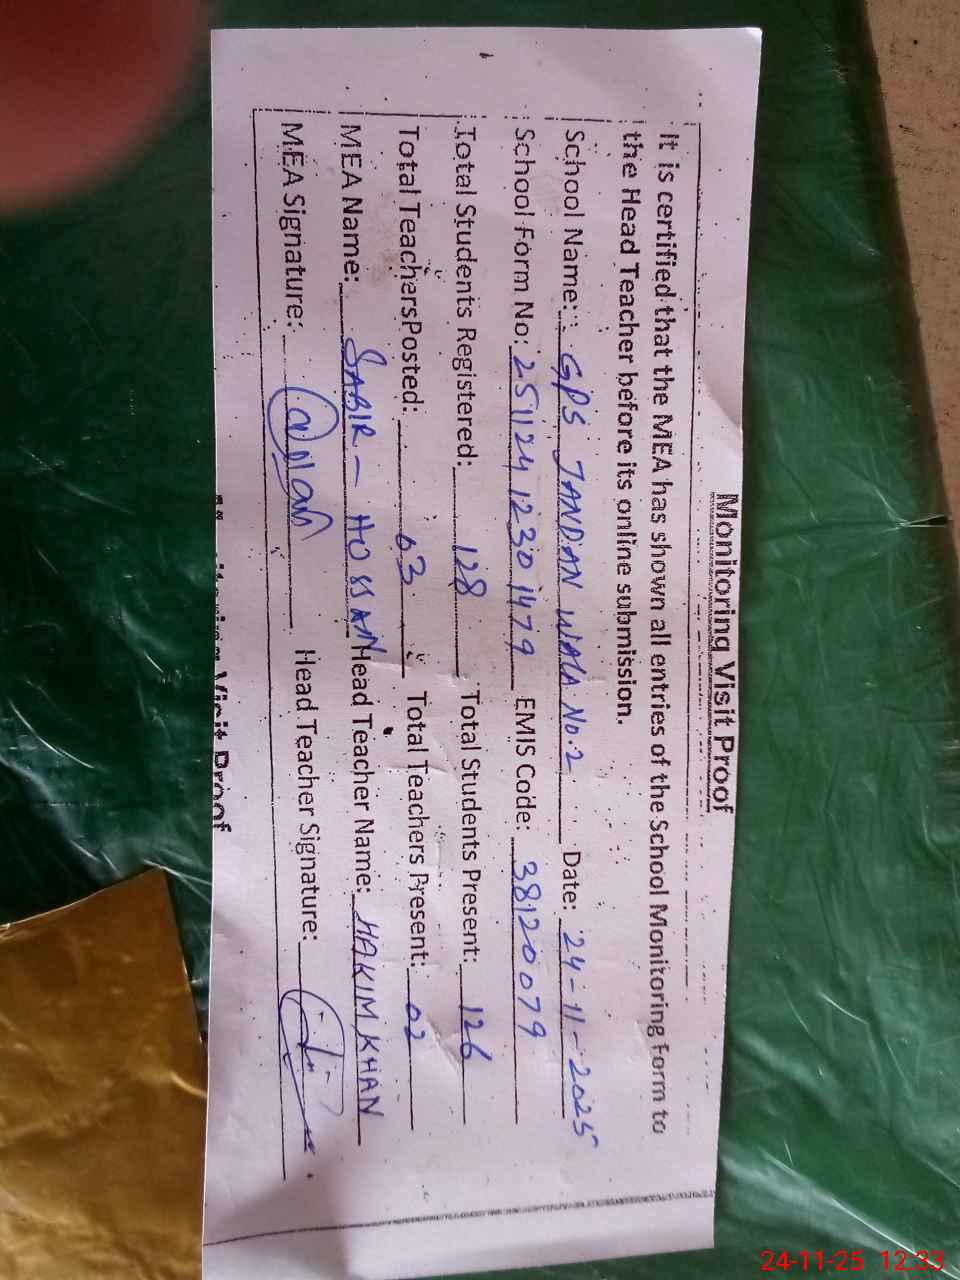 Monitoring Visit Proof
It is certified that the MEA has shown all entries of the School Monitoring Form to
the Head Teacher before its online submission.
School Name: GPS JANDAN WALA No.2 Date: 24-11-2025
School Form No: 251124 1230 1479 EMIS Code: 38120079
Total Students Registered: 128 Total Students Present: 126
Total TeachersPosted: 03 Total Teachers Present: 02
MEA Name: SABIR - HOSSAN Head Teacher Name: HAKIM KHAN
MEA Signature: Head Teacher Signature:
Visit Proof
24-11-25 12:33